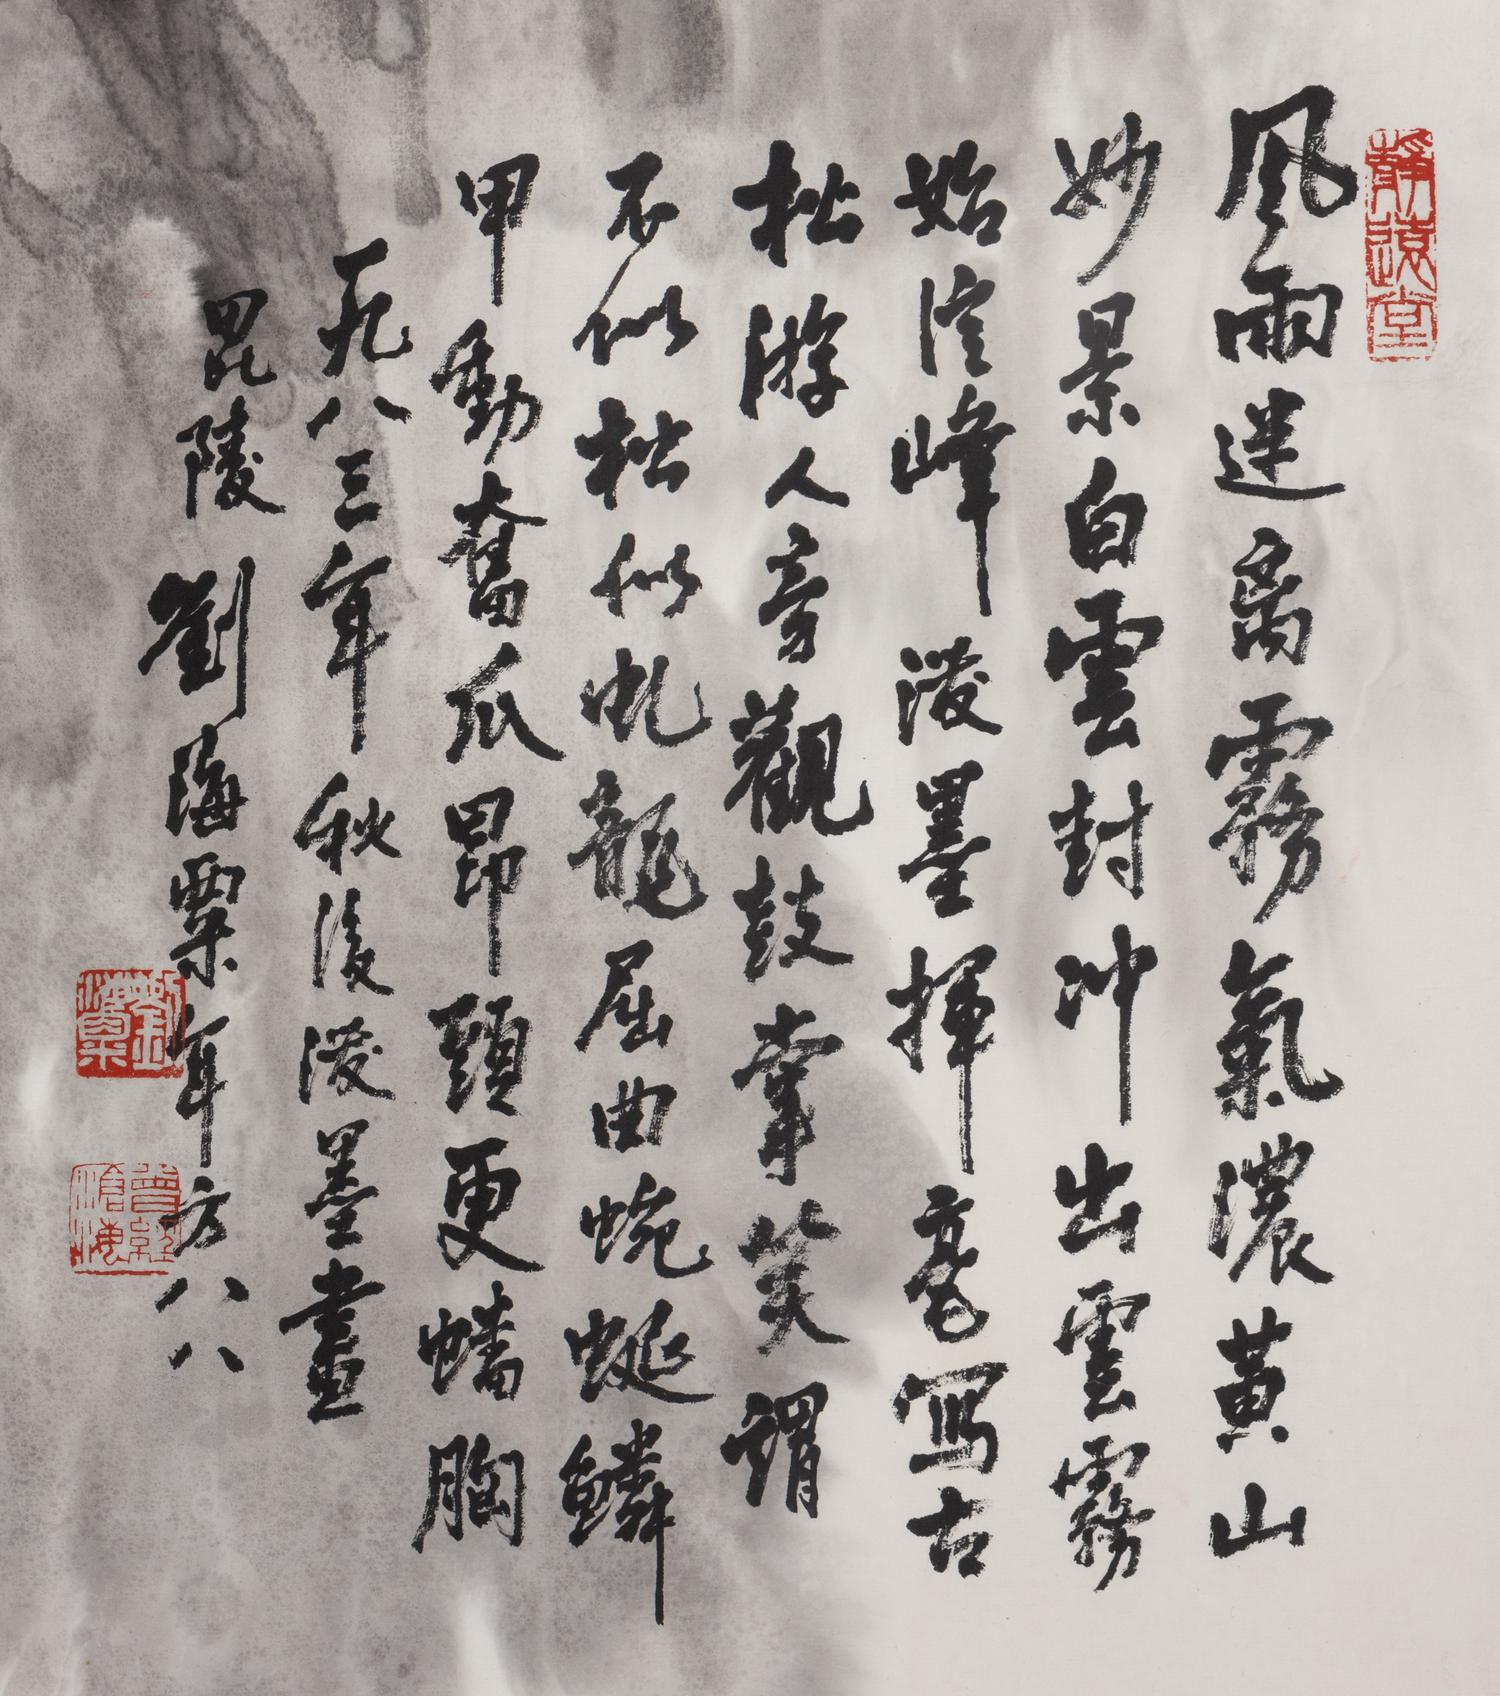 靜遠堂
風雨迷离霧氣濃黃山
妙景白雲封冲出雲霧
始信峰潑墨揮毫寫古
松游人旁觀鼓掌笑謂
不似松松似虬龍屈曲蜿蜒鱗
甲動奮爪昂頭更蟠胸
一九八三年秋后潑墨畫
毘陵劉海粟年方八八
劉海粟
曾經滄海